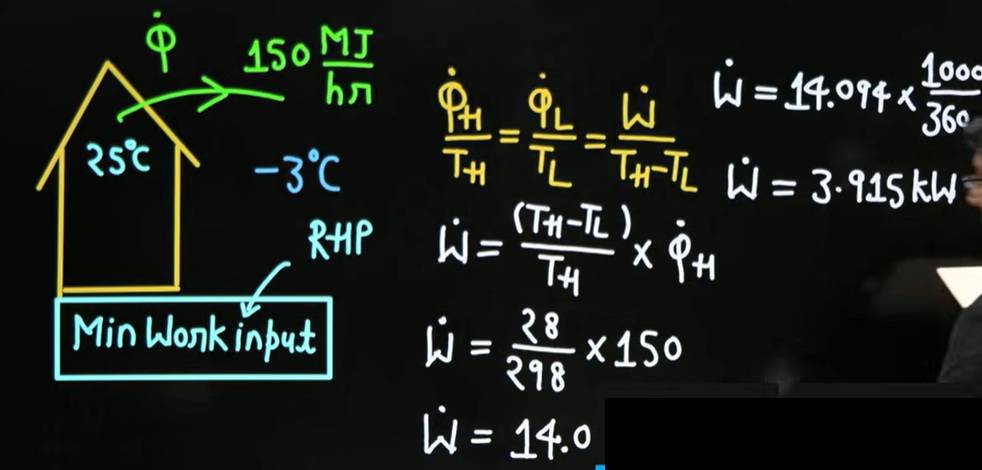 Q̇
150 MJ/hr
25°C
-3°C
RHP
Min Work input
Q̇H/TH = Q̇L/TL = Ẇ/TH-TL
Ẇ = (TH-TL)/TH × Q̇H
Ẇ = 28/298 × 150
Ẇ = 14.0
Ẇ = 14.094 × 1000/360
Ẇ = 3.915 kW